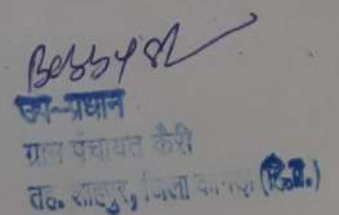 उप-प्रधान
ग्राम पंचायत कैरी
तह. शाहपुर, जिला कांगड़ा (हि.प्र.)